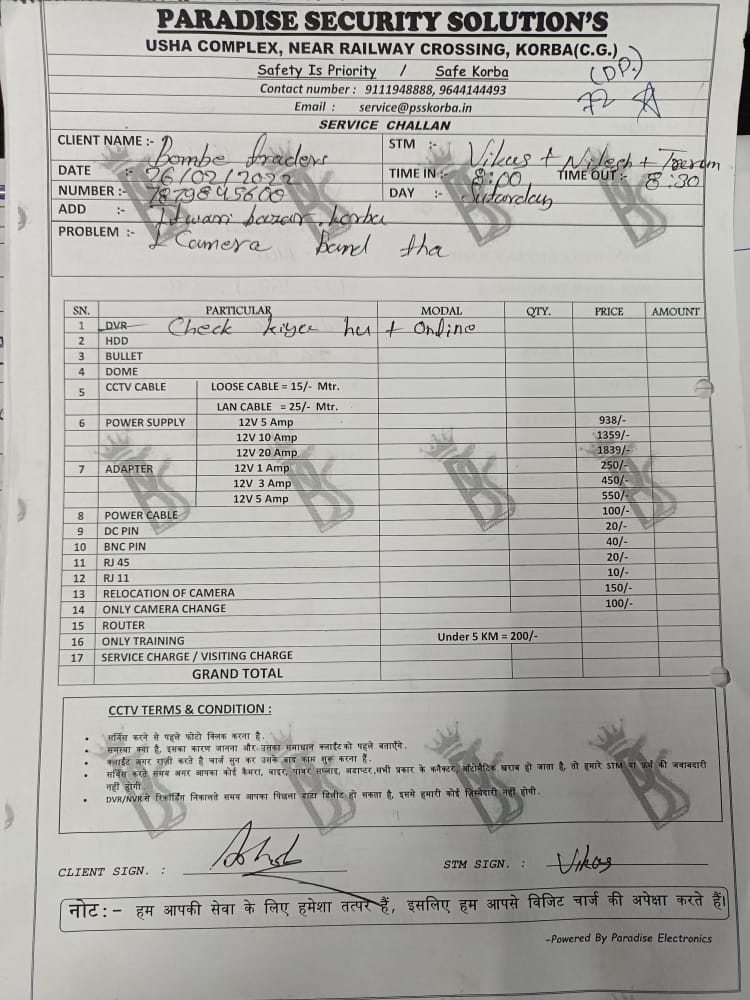 PARADISE SECURITY SOLUTION'S
USHA COMPLEX, NEAR RAILWAY CROSSING, KORBA(C.G.)
Safety Is Priority / Safe Korba
(DP.)
Contact number : 9111948888, 9644144493
72
Email : service@psskorba.in
SERVICE CHALLAN
CLIENT NAME :- Bombe traders
STM :- Vikas + Nilesh +
DATE :- 26/02/2022
TIME IN :- 8:00 TIME OUT :- 8:30
NUMBER :- 7879845600
DAY :- Suturday
ADD :- Itwari bazar, korba
PROBLEM :- 1 Camera band tha
SN. PARTICULAR MODAL QTY. PRICE AMOUNT
1 DVR Check kiye hu + Online
2 HDD
3 BULLET
4 DOME
5 CCTV CABLE LOOSE CABLE = 15/- Mtr.
LAN CABLE = 25/- Mtr.
6 POWER SUPPLY 12V 5 Amp 938/-
12V 10 Amp 1359/-
12V 20 Amp 1839/-
7 ADAPTER 12V 1 Amp 250/-
12V 3 Amp 450/-
12V 5 Amp 550/-
8 POWER CABLE 100/-
9 DC PIN 20/-
10 BNC PIN 40/-
11 RJ 45 20/-
12 RJ 11 10/-
13 RELOCATION OF CAMERA 150/-
14 ONLY CAMERA CHANGE 100/-
15 ROUTER
16 ONLY TRAINING Under 5 KM = 200/-
17 SERVICE CHARGE / VISITING CHARGE
GRAND TOTAL
CCTV TERMS & CONDITION :
• सर्विस करने से पहले फोटो क्लिक करना है.
• समस्या क्या है, इसका कारण जानना और उसका समाधान क्लाईंट को पहले बताऐंगे.
• क्लाईंट अगर राज़ी करते है चार्ज सुन कर उसके बाद काम शुरू करना है.
• सर्विस करते समय अगर आपका कोई कैमरा, वाइर, पावर सप्लाई, अडाप्टर,सभी प्रकार के कनैक्टर, ऑटोमैटिक खराब हो जाता है, तो हमारे STM या फर्म की जवाबदारी
नहीं होगी.
• DVR/NVR से रिकॉर्डिंग निकालते समय आपका पिछला डाटा डिलीट हो सकता है, इसमे हमारी कोई ज़िम्मेदारी नहीं होगी.
CLIENT SIGN. :
STM SIGN. : Vikas
नोट :- हम आपकी सेवा के लिए हमेशा तत्पर हैं, इसलिए हम आपसे विजिट चार्ज की अपेक्षा करते हैं।
-Powered By Paradise Electronics